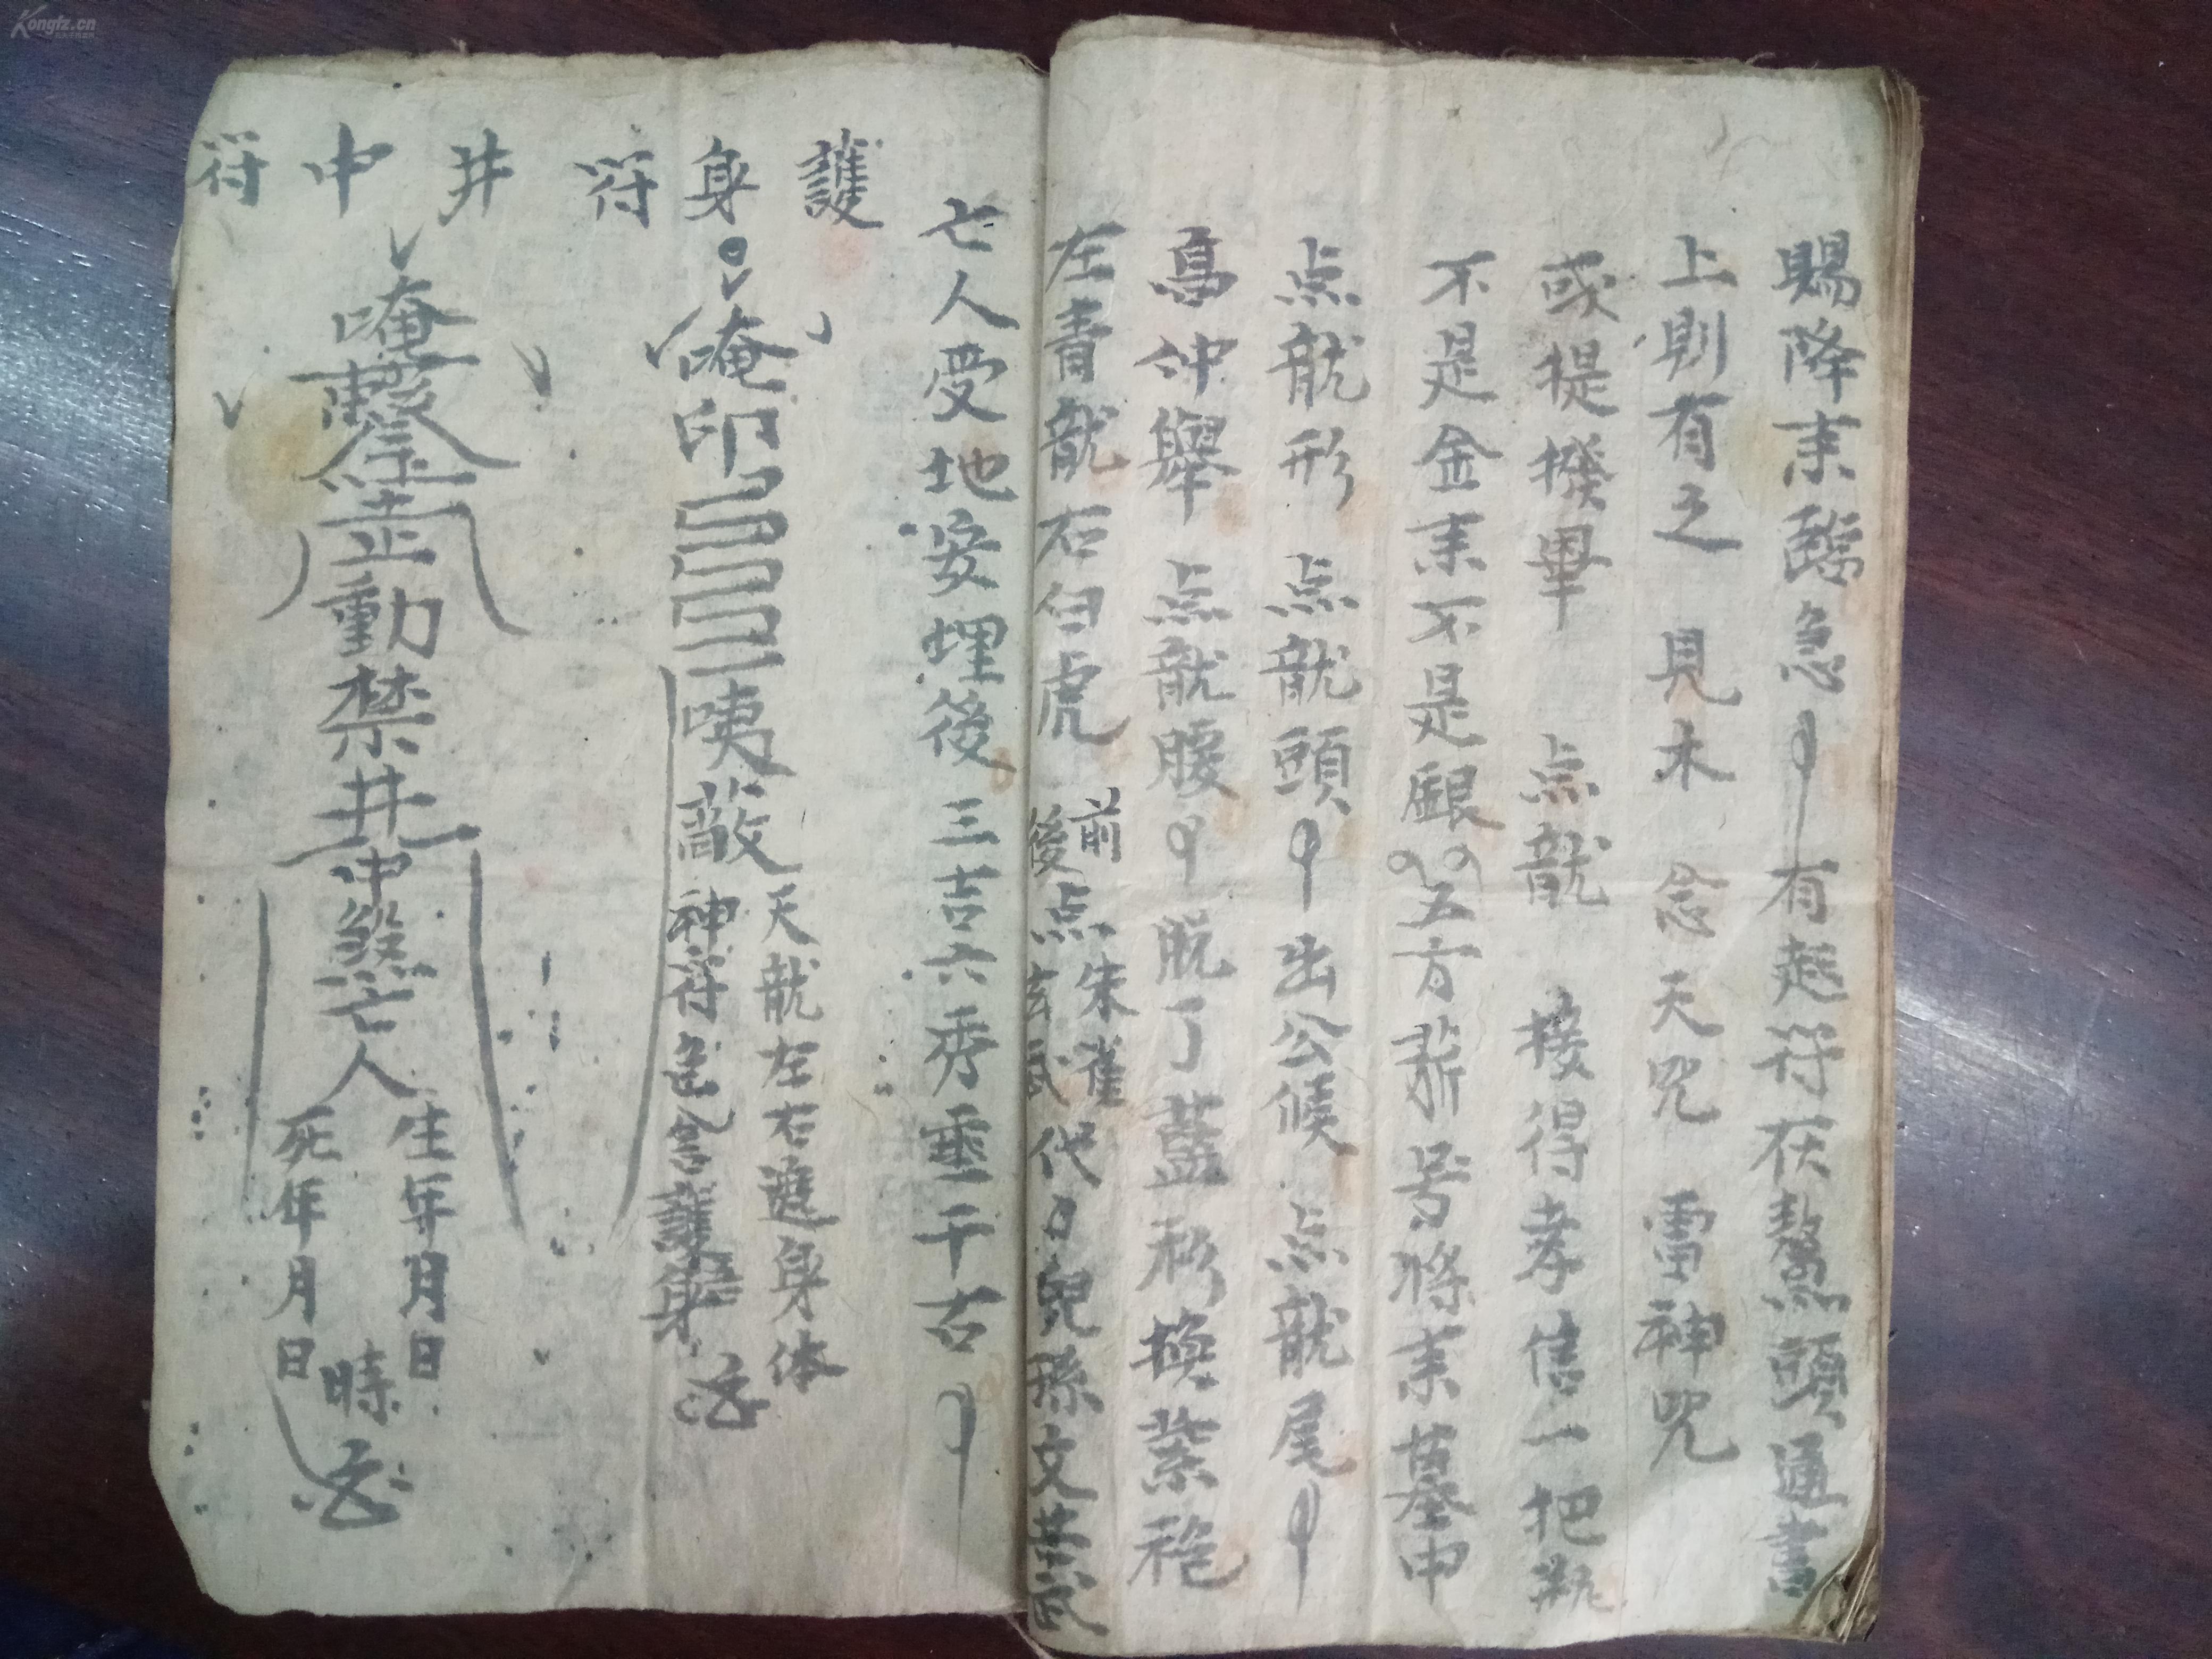 賜降来臨急有起符茯鰲頭通書
上則有之 見木 念天咒 雷神咒
或提撥畢 点龍 接得孝信一把
不是金来不是銀五方号將来墓中
点龍形 点龍頭出公候点龍尾
舉点龍腰脱了藍衫換紫袍
左青龍右白虎 前点朱雀後玄武代日兒孫文共武
亡人受地安埋後三吉六秀垂千古
護身符
唵印
天龍左右遮身体
神符色含護身
井中符
唵
止動禁井中煞亡人
生年月日
死年月日
時
Kongfz.cn